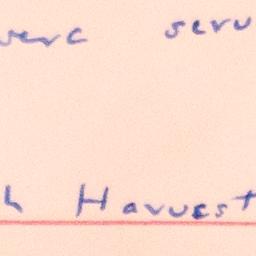 were serv
h Harvest